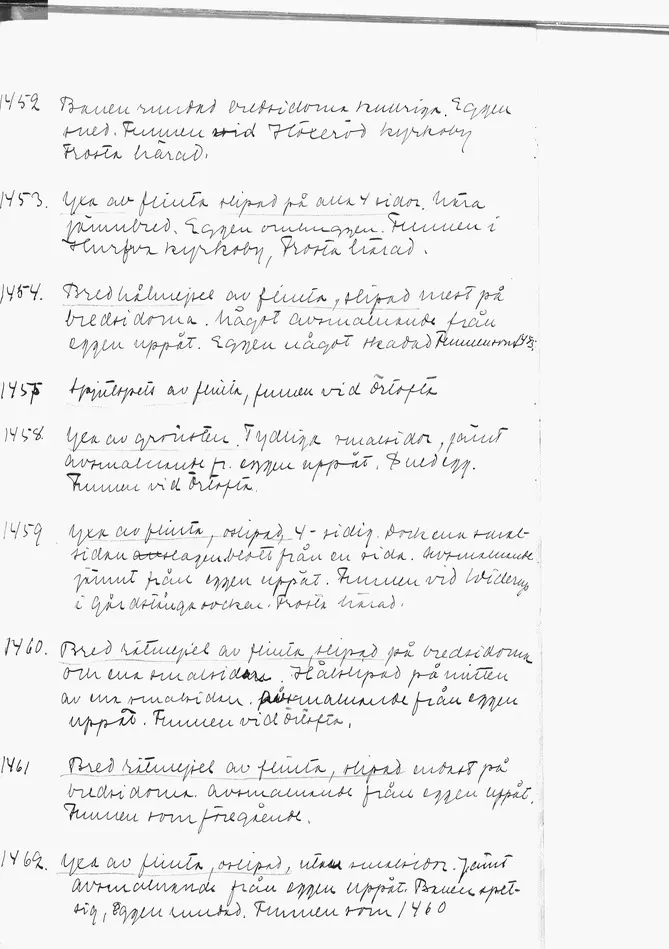 1452 Banen rundad bredsidorna kullriga. Eggen
sned. Funnen vid Höxeröd kyrkoby
Frosta härad.
1453. Yxa av flinta slipad på alla 4 sidor. Nära
jämnbred. Eggen omenggen. Funnen i
Hurfva kyrkoby, Frosta härad.
1454. Bred hålmejsel av flinta, slipad mest på
bredsidorna. Något avsmalnande från
eggen uppåt. Eggen något skadad Funnen som
1455 Spjutspets av flinta, funnen vid Örtofta
1458. Yxa av grönsten. Tydliga smalsidor, jämt
avsmalnande fr. eggen uppåt. Sned egg.
Funnen vid Örtofta.
1459 Yxa av flinta, oslipad, 4-sidig. Dock ena smal-
sidan slagen blott från en sida. Avsmalnande
jämnt från eggen uppåt. Funnen vid Widerup
i Gårdstånga socken. Frosta härad.
1460. Bred rätmejsel av flinta, slipad på bredsidorna
och ena smalsidan. Hålslipad på mitten
av ena smalsidan. Avsmalnande från eggen
uppåt. Funnen vid Örtofta.
1461 Bred rätmejsel av flinta, slipad endast på
bredsidorna. Avsmalnande från eggen uppåt.
Funnen som föregående.
1462. Yxa av flinta, oslipad, utan smalsidor. Jämt
avsmalnande från eggen uppåt. Banen spet-
sig, Eggen rundad. Funnen som 1460